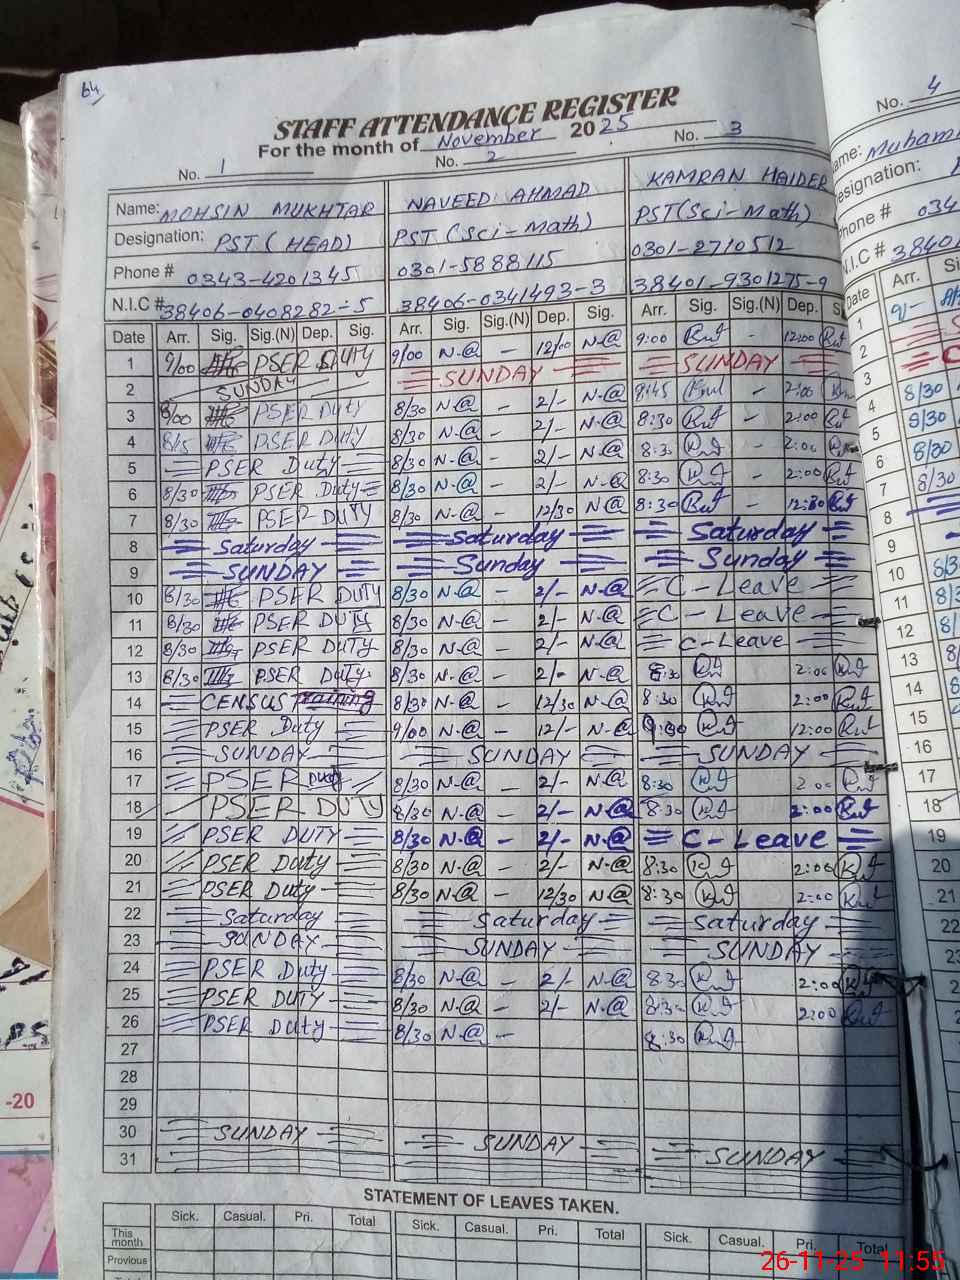 64
STAFF ATTENDANCE REGISTER
For the month of November 2025
No. 1 No. 2 No. 3
Name: MOHSIN MUKHTAR NAVEED AHMAD KAMRAN HAIDER
Designation: PST (HEAD) PST (Sci-Math) PST (Sci-Math)
Phone # 0343-4201345 0301-5888115 0301-2710512
N.I.C # 38406-0408282-5 38406-0341493-3 38401-9301275-9
Date Arr. Sig. Sig.(N) Dep. Sig. Arr. Sig. Sig.(N) Dep. Sig. Arr. Sig. Sig.(N) Dep.
1 9/00 PSER DUTY 9/00 N.@ - 12/00 N.@ 9:00 - 12:00
2 SUNDAY SUNDAY SUNDAY
3 8/00 PSER Duty 8/30 N.@ - 2/- N.@ 8:45 - 2:00
4 PSER DUTY 8/30 N.@ - 2/- N.@ 8:30 - 2:00
5 PSER Duty 8/30 N.@ - 2/- N.@ 8:30 - 2:00
6 8/30 PSER Duty 8/30 N.@ - 2/- N.@ 8:30 - 2:00
7 8/30 PSER DUTY 8/30 N.@ - 12/30 N.@ 8:30 - 12:30
8 Saturday Saturday Saturday
9 SUNDAY Sunday Sunday
10 8/30 PSER DUTY 8/30 N.@ - 2/- N.@ C-Leave
11 8/30 PSER DUTY 8/30 N.@ - 2/- N.@ C-Leave
12 8/30 PSER DUTY 8/30 N.@ - 2/- N.@ C-Leave
13 8/30 PSER Duty 8/30 N.@ - 2/- N.@ 8:30 2:00
14 CENSUS Training 8/30 N.@ - 12/30 N.@ 8:30 2:00
15 PSER Duty 9/00 N.@ - 12/- N.@ 9:00 12:00
16 SUNDAY SUNDAY SUNDAY
17 PSER Duty 8/30 N.@ - 2/- N.@ 8:30 2:00
18 PSER DUTY 8/30 N.@ - 2/- N.@ 8:30 2:00
19 PSER DUTY 8/30 N.@ - 2/- N.@ C-Leave
20 PSER Duty 8/30 N.@ - 2/- N.@ 8:30 2:00
21 PSER Duty 8/30 N.@ - 12/30 N.@ 8:30 2:00
22 Saturday Saturday Saturday
23 SUNDAY SUNDAY SUNDAY
24 PSER Duty 8/30 N.@ - 2/- N.@ 8:30 2:00
25 PSER DUTY 8/30 N.@ - 2/- N.@ 8:30 2:00
26 PSER Duty 8/30 N.@ - 8:30
27
28
29
30 SUNDAY SUNDAY SUNDAY
31
STATEMENT OF LEAVES TAKEN.
Sick. Casual. Pri. Total Sick. Casual. Pri. Total Sick. Casual. Pri. Total
This month
Previous
No. 4
Phone #
N.I.C #
Date Arr.
1
2
3
4 8/30
5 8/30
6 8/30
7 8/30
8
9
10
11
12
13
14
15
16
17
18
19
20
21
22
-20
26-11-25 11:55